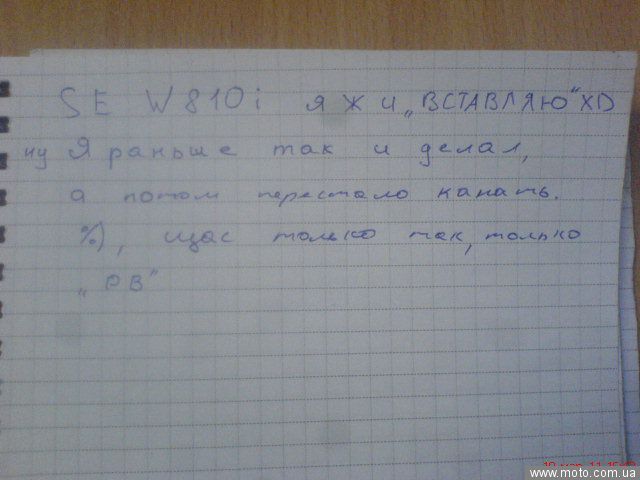 SE W810i я ж и „ВСТАВЛЯЮ" XD
ну Я раньше так и делал,
а потом перестало канать.
%), щас только так, только
„РВ"
www.moto.com.ua